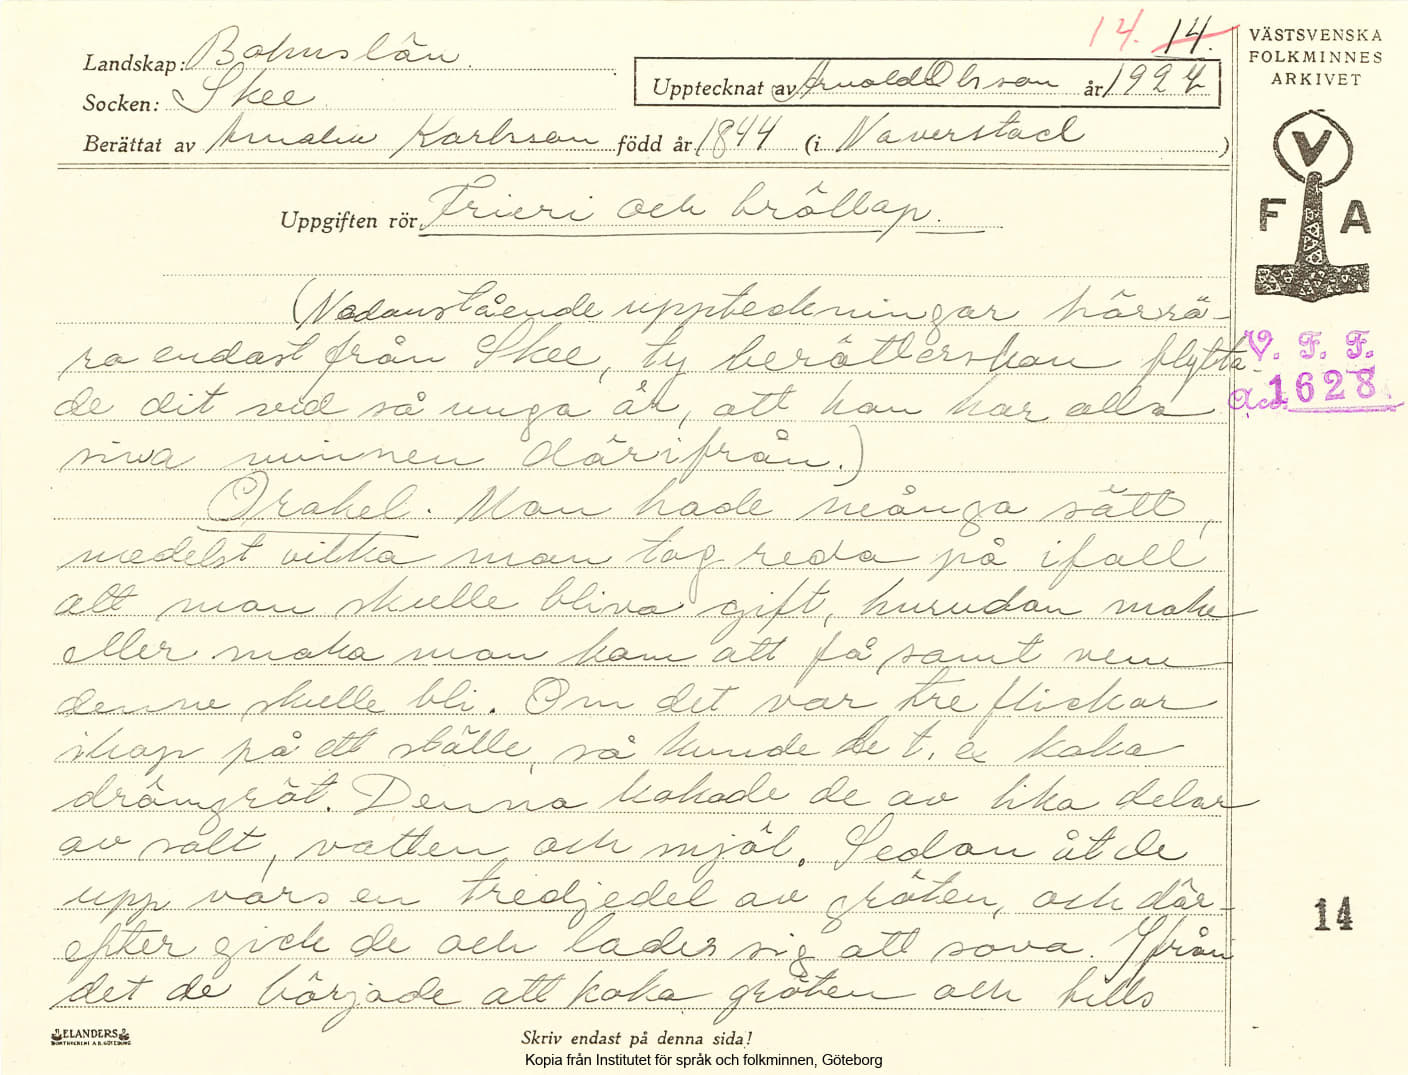 14. 14.
VÄSTSVENSKA
FOLKMINNES
ARKIVET
Landskap: Bohuslän.
Upptecknat av Arnold Olsson år 1924
Socken: Skee
Berättat av Amalia Karlsson född år 1844 (i Naverstad )
V
F A
Uppgiften rör Frieri och bröllop.
(Nedanstående uppteckningar härrö-
ra endast från Skee, ty berätterskan flytta-
de dit vid så unga år, att hon har alla
sina minnen därifrån.)
V. F. F.
Acc. 1628
Orakel. Man hade många sätt,
medelst vilka man tog reda på ifall
att man skulle bliva gift, hurudan make
eller maka man kom att få samt vem
denne skulle bli. Om det var tre flickor
ihop på ett ställe, så kunde de t. ex koka
drömgröt. Denna kokade de av lika delar
av salt, vatten och mjöl. Sedan åt de
upp vars en tredjedel av gröten, och där-
efter gick de och lades sig att sova. Ifrån
det de började att koka gröten och tills
14
ELANDERS
BOKTRYCKERI A.B. GÖTEBORG
Skriv endast på denna sida!
Kopia från Institutet för språk och folkminnen, Göteborg